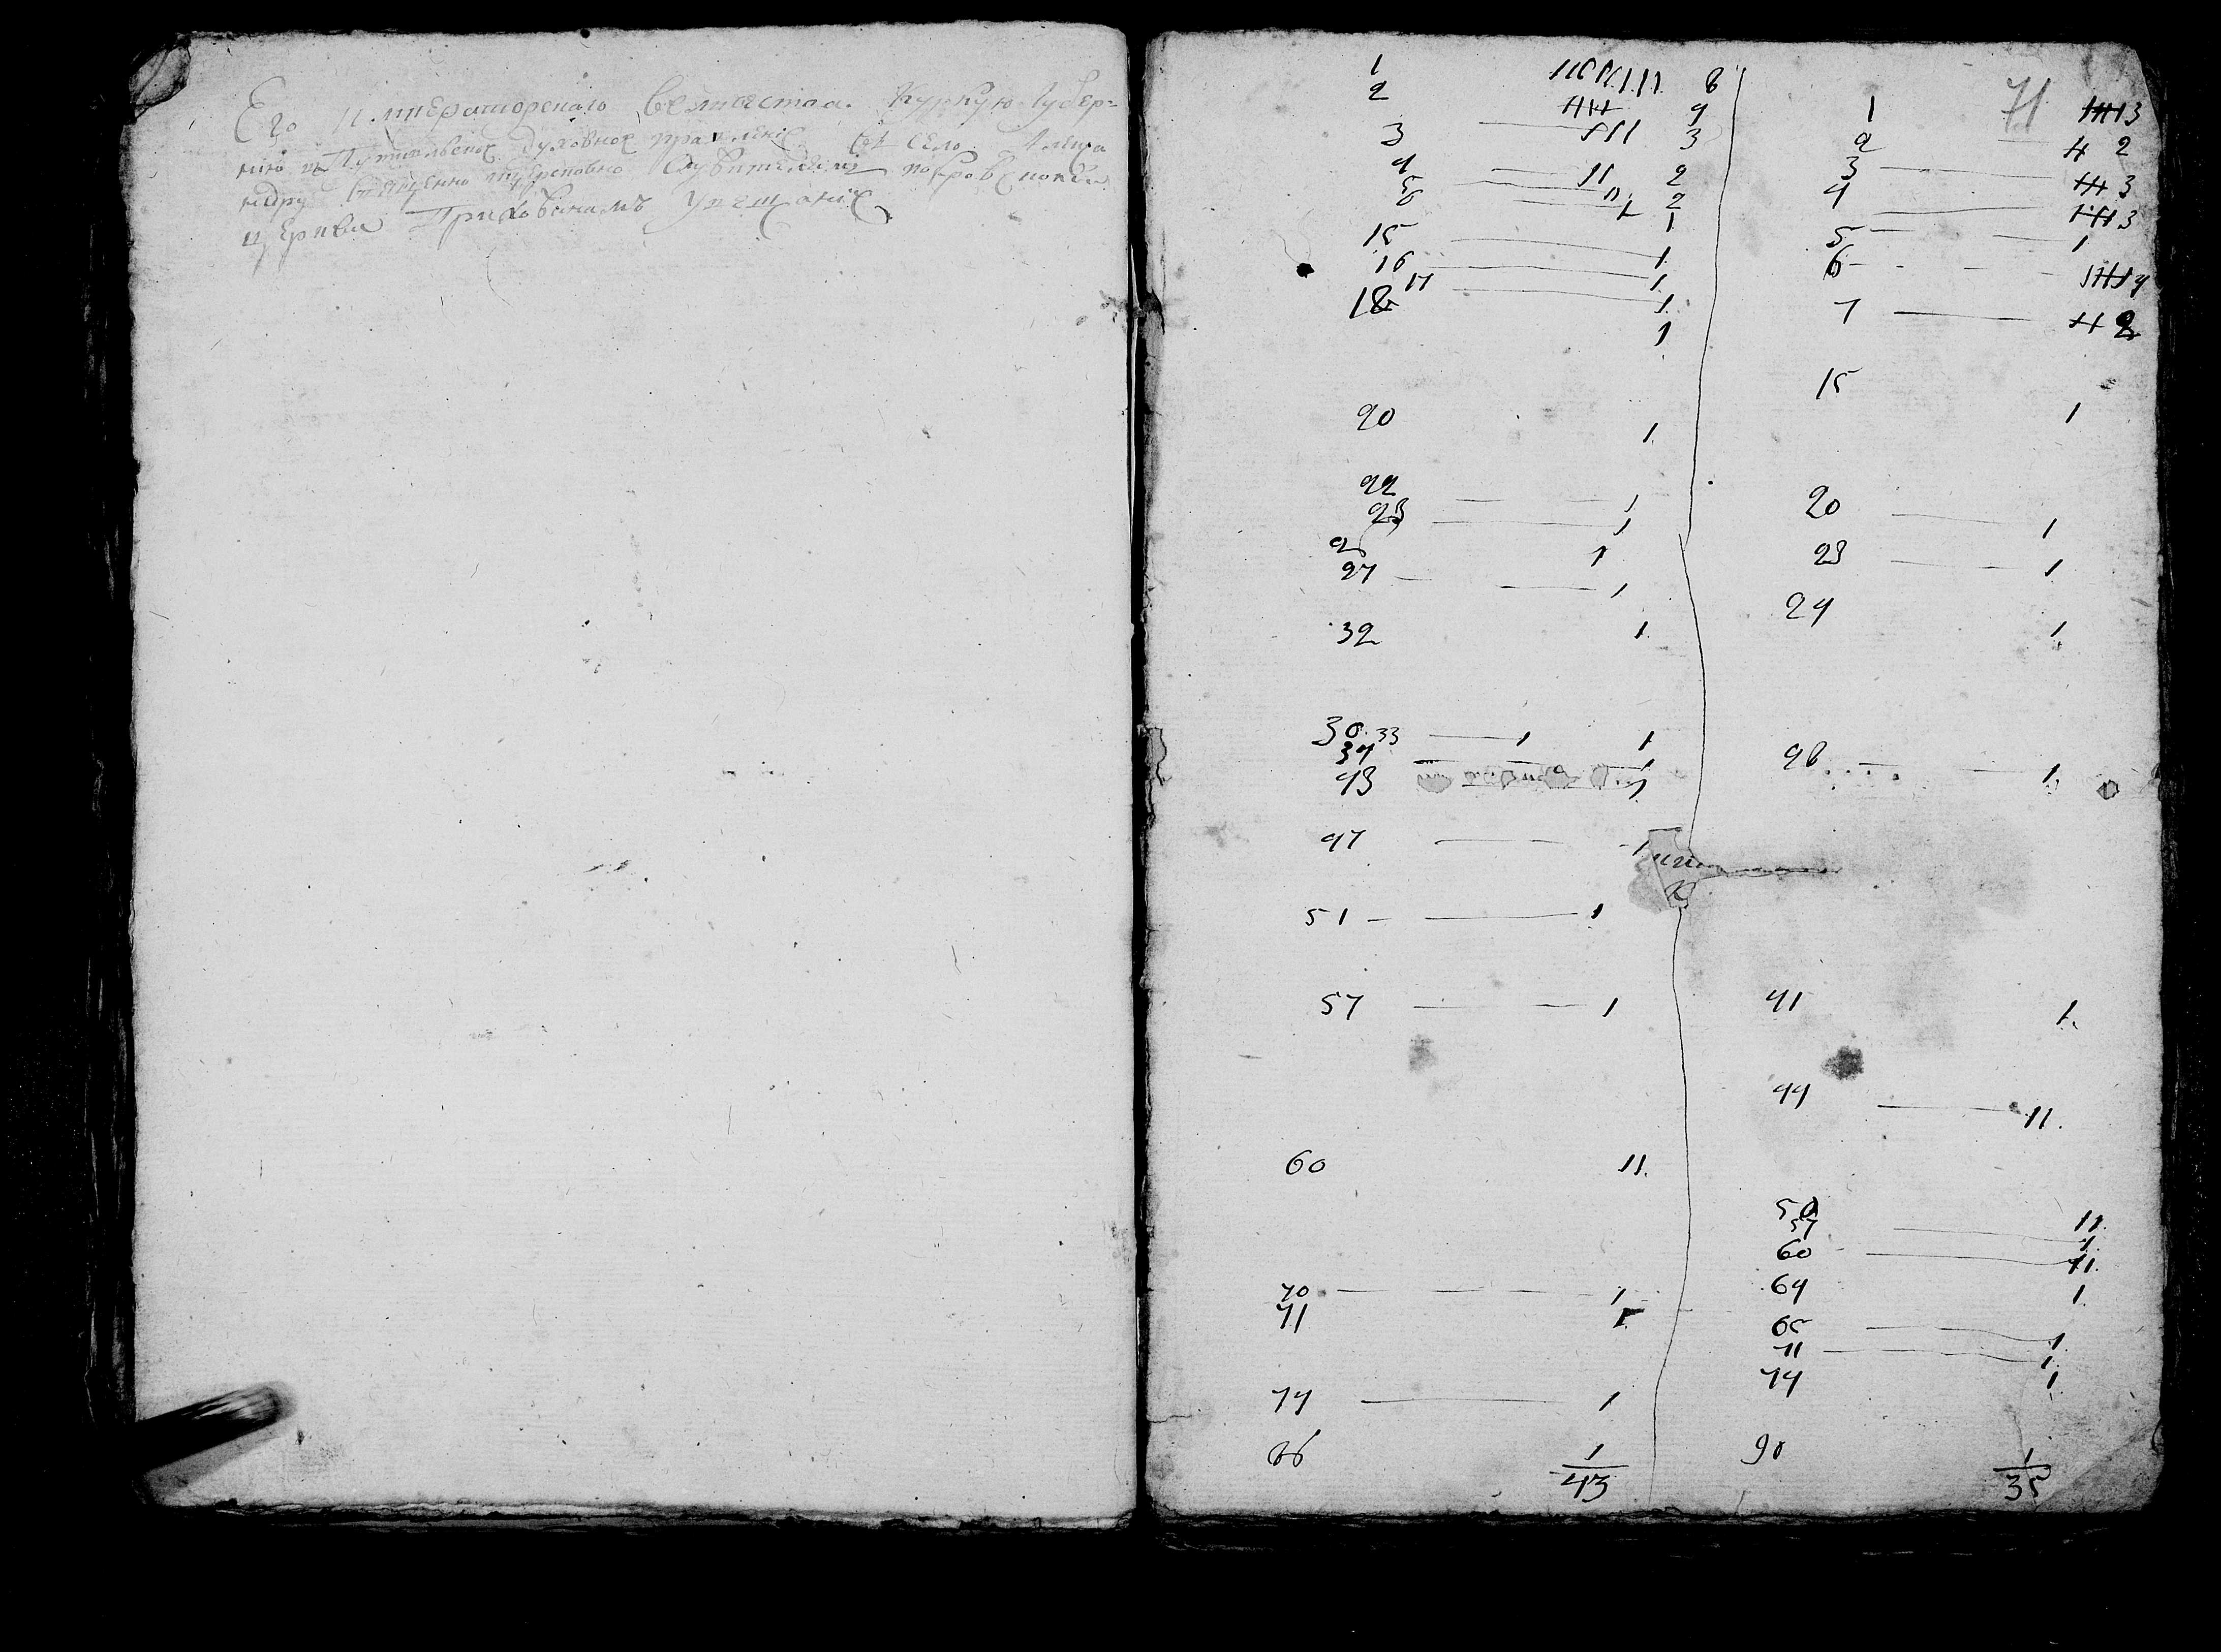 Его Императорскаго величества. Курскую Губер=
нию въ Путивльское духовное правление Села
надру священно церковно служителемъ покровской
церкви Приховенамъ Увещание
71
1 8
2 9
3 3
4 2
5 2
6 1
15 1
16 1
17 1
18 1
20 1
22 1
23 1
1
27 1
32 1
30. 33 1 1
34 1
43 1
47 1
51 1
57 1
60 11.
70 1
71 1
74 1
86 1
43
1 3
2 2
3 3
4 3
5 1
6 4
7 2
15 1
20 1
23 1
24 1
28 1.
41 1.
44 11.
50 11.
57 1
60 11.
64 1
65 1
71 1
74 1
90 1
35